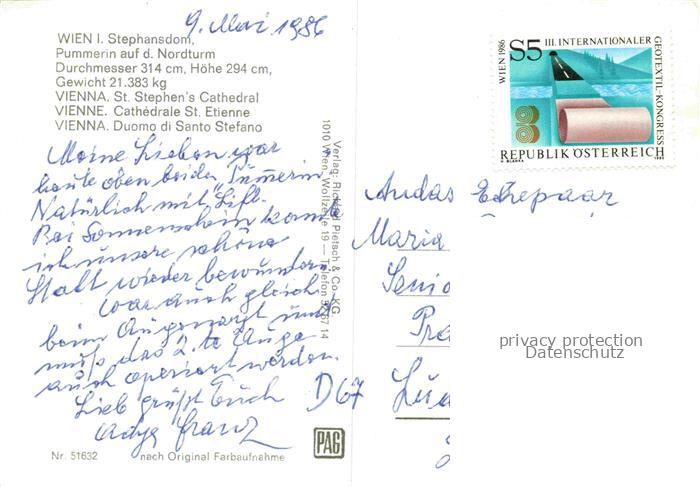 9. Mai 1986
WIEN I. Stephansdom,
Pummerin auf d. Nordturm
Durchmesser 314 cm, Höhe 294 cm,
Gewicht 21.383 kg
VIENNA. St. Stephen's Cathedral
VIENNE. Cathédrale St. Etienne
VIENNA. Duomo di Santo Stefano
Meine Lieben, war
heute oben bei der Pummerin
Natürlich mit "Lift.
Bei Sonnenschein konnte
ich unsere schöne
Stadt wieder bewundern.
War auch gleich
beim Augenarzt und
muß das 2.te Auge
auch operiert werden.
Lieb grüßt Euch
Franz
Nr. 51632
nach Original Farbaufnahme
PAG
Verlag: Richard Pietsch & Co. KG.
1010 Wien, Wollzeile 19 — Telefon 52 67 14
WIEN 1986
S5
III. INTERNATIONALER
GEOTEXTIL-KONGRESS
REPUBLIK ÖSTERREICH
An das Ehepaar
Maria
D 67
privacy protection
Datenschutz